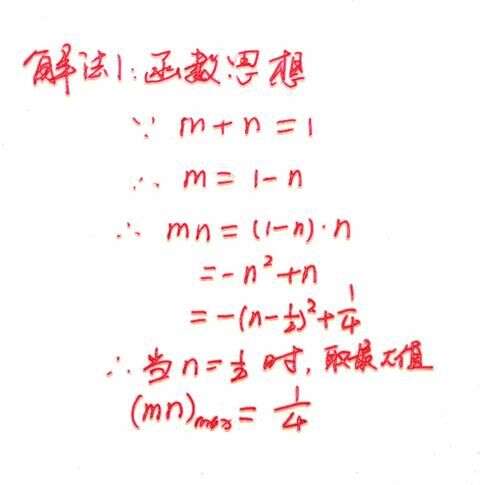 解法1:函数思想
∵ m+n=1
∴ m=1-n
∴ mn=(1-n)·n
=-n²+n
=-(n-1/2)²+1/4
∴当n=1/2时,取最大值
(mn)max=1/4